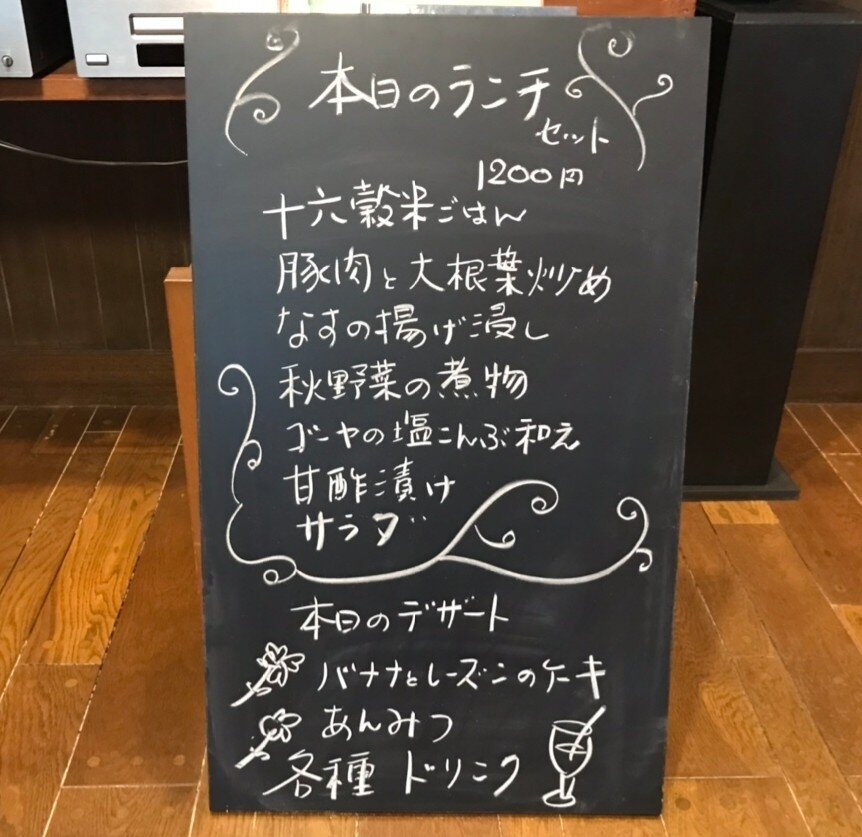 本日のランチ
セット
1200円
十六穀米ごはん
豚肉と大根葉炒め
なすの揚げ浸し
秋野菜の煮物
ゴーヤの塩こんぶ和え
甘酢漬け
サラダ
本日のデザート
バナナとレーズンのケーキ
あんみつ
各種 ドリンク